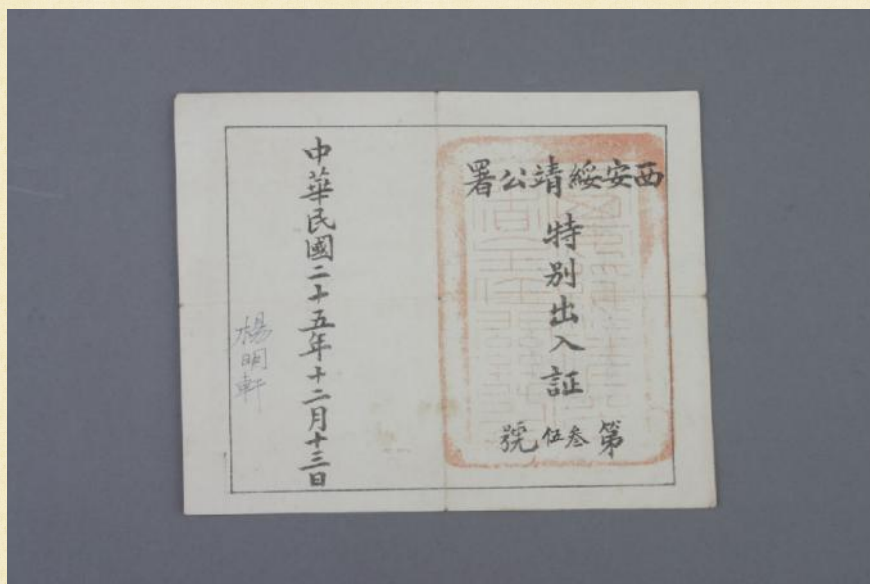 西安綏靖公署
特別出入証
第叁伍號
中華民國二十五年十二月十三日
楊明軒